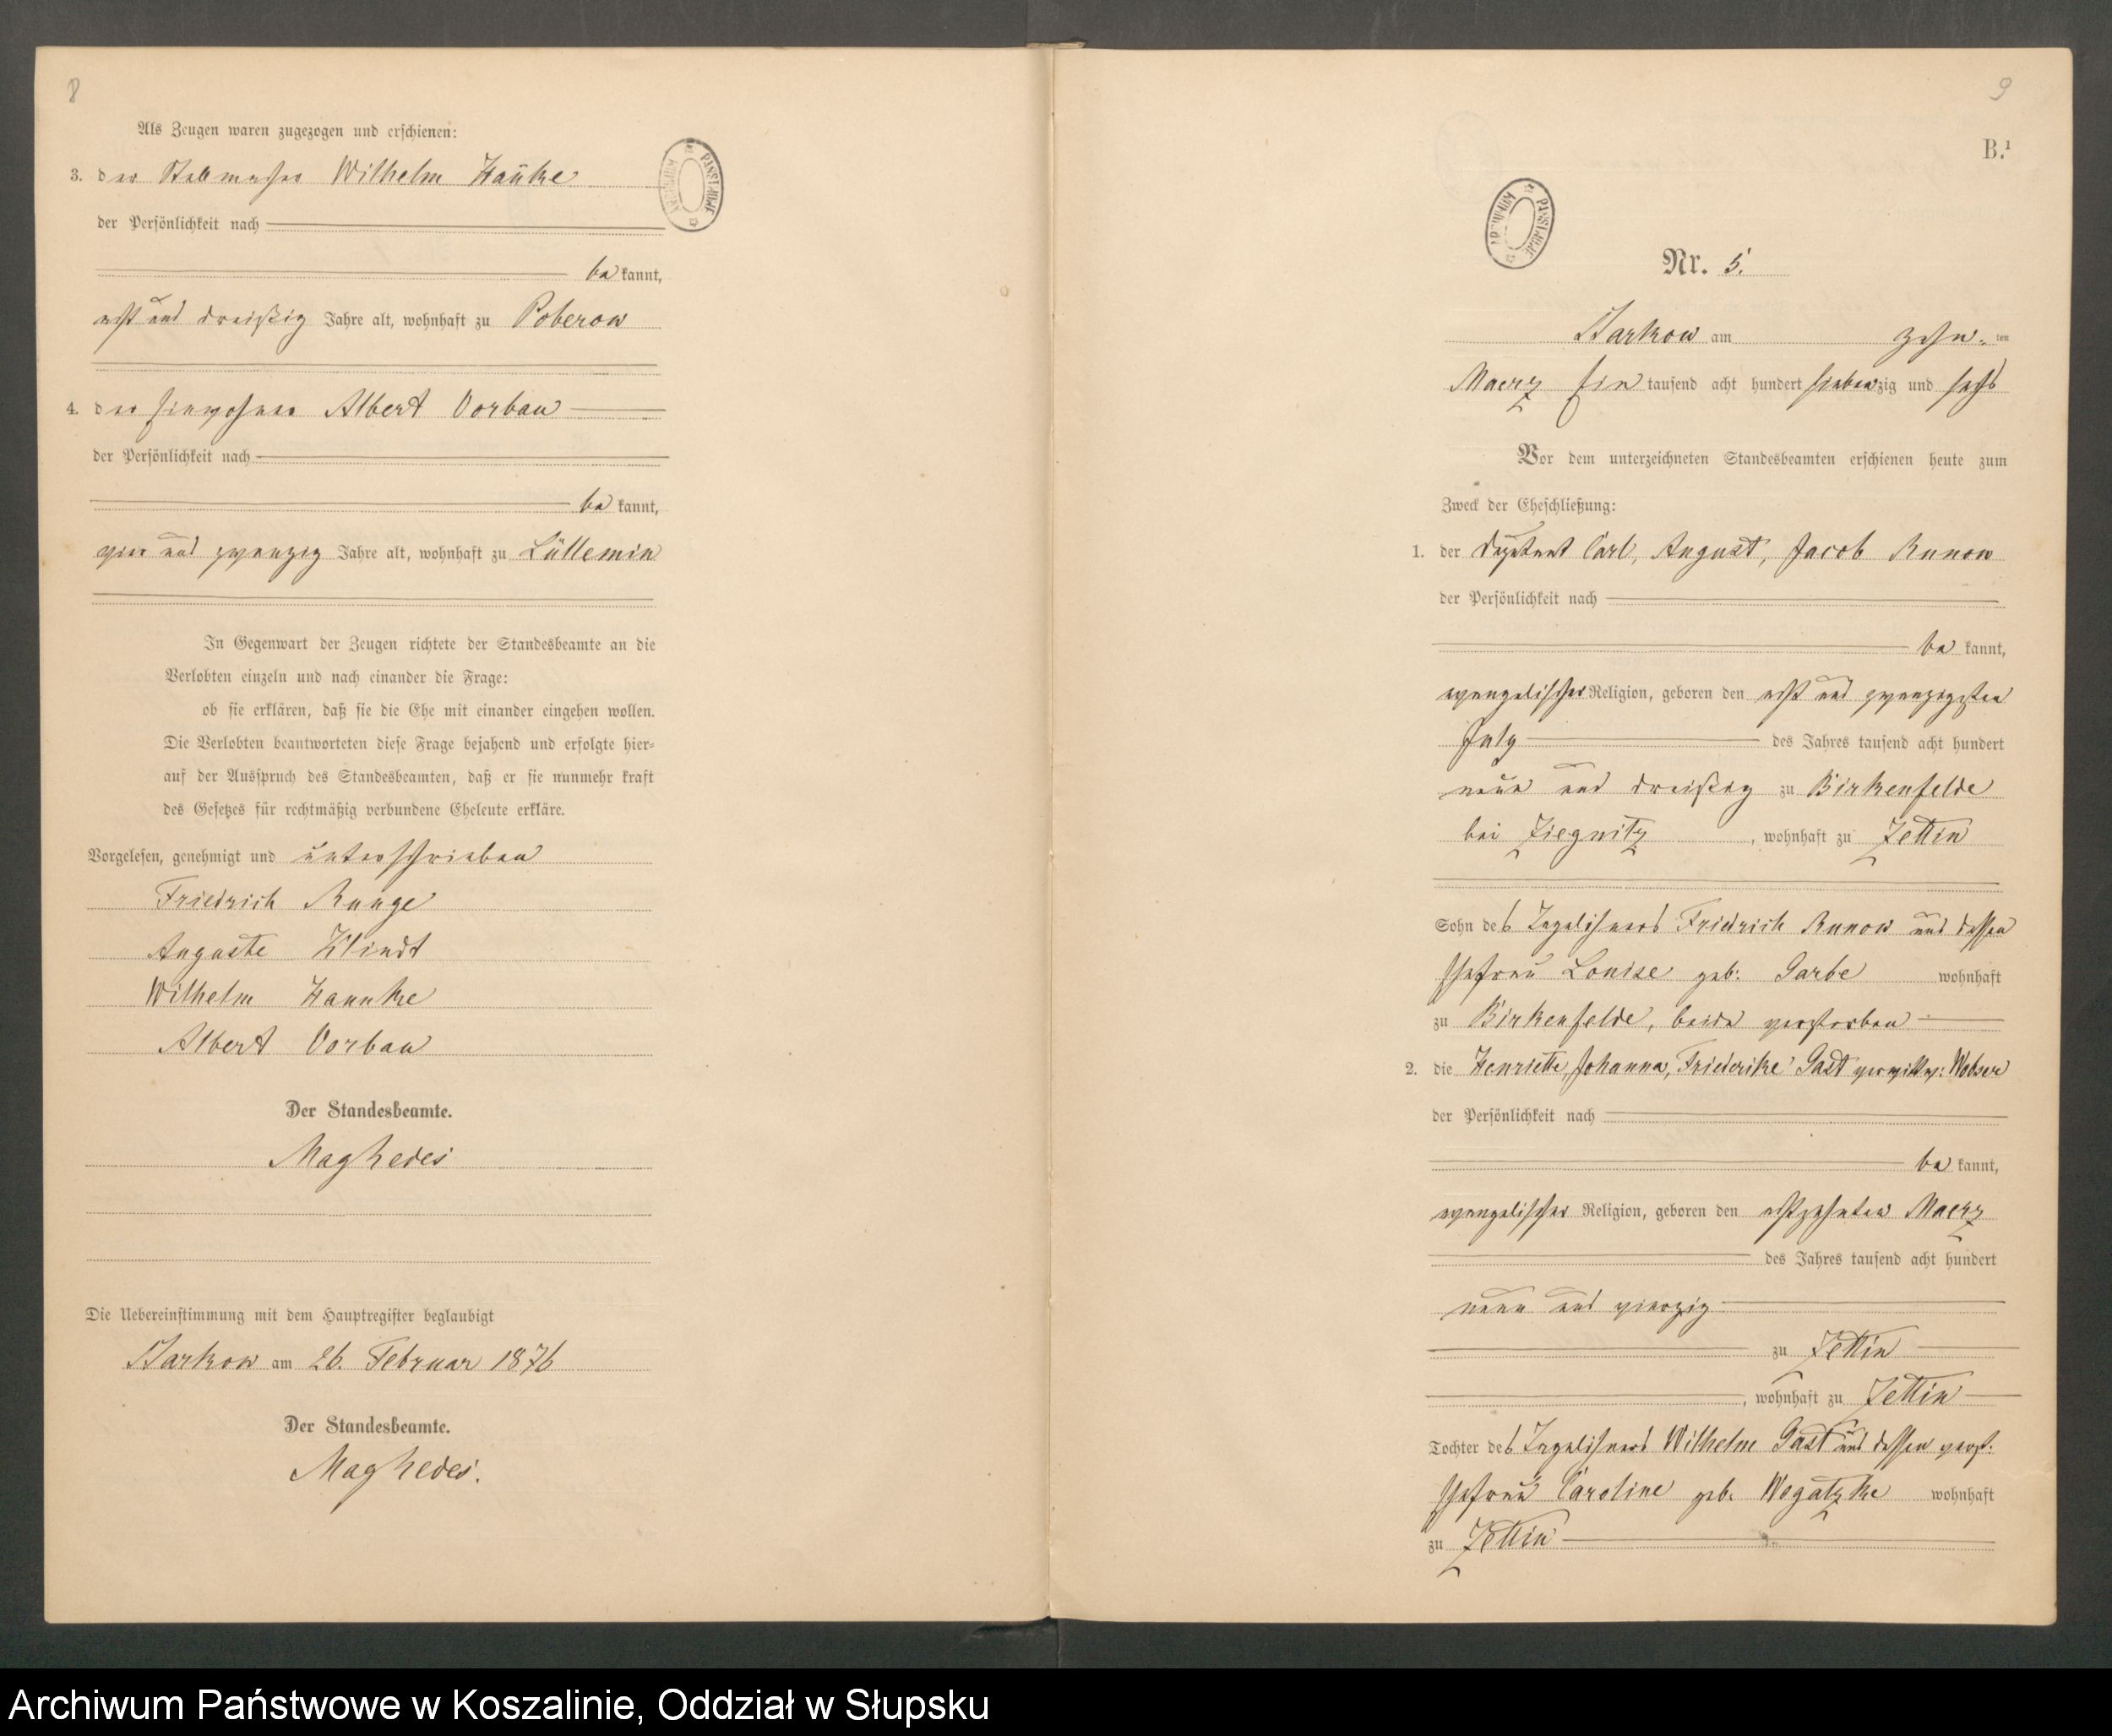 8
Als Zeugen waren zugezogen und erschienen:
3. der Stellmacher Wilhelm Hanke
der Persönlichkeit nach
be kannt,
acht und dreißig Jahre alt, wohnhaft zu Poberow
4. der Einwohner Albert Vorbau
der Persönlichkeit nach
be kannt,
vier und zwanzig Jahre alt, wohnhaft zu Lüllemin
In Gegenwart der Zeugen richtete der Standesbeamte an die
Verlobten einzeln und nach einander die Frage:
ob sie erklären, daß sie die Ehe mit einander eingehen wollen.
Die Verlobten beantworteten diese Frage bejahend und erfolgte hier-
auf der Ausspruch des Standesbeamten, daß er sie nunmehr kraft
des Gesetzes für rechtmäßig verbundene Eheleute erkläre.
Vorgelesen, genehmigt und unterschrieben
Friedrich Runge
Auguste Klindt
Wilhelm Hannke
Albert Vorbau
Der Standesbeamte.
Die Uebereinstimmung mit dem Hauptregister beglaubigt
Starkow am 26. Februar 1876
Der Standesbeamte.
ARCHIWUM PAŃSTWOWE
9
B.¹
ARCHIWUM PAŃSTWOWE
Nr. 5.
Starkow am zehn ten
Maerz Ein tausend acht hundert siebenzig und sechs
Vor dem unterzeichneten Standesbeamten erschienen heute zum
Zweck der Eheschließung:
1. der Deputant Carl, August, Jacob Runow
der Persönlichkeit nach
be kannt,
evangelischer Religion, geboren den acht und zwanzigsten
July des Jahres tausend acht hundert
neun und dreißig zu Birkenfelde
bei Ziegnitz, wohnhaft zu Zettin
Sohn des Tagelöhners Friedrich Runow und dessen
Ehefrau Louise geb: Garbe wohnhaft
zu Birkenfelde, beide verstorben
2. die Henriette, Johanna, Friederike Gast verwittw: Wobser
der Persönlichkeit nach
be kannt,
evangelischer Religion, geboren den achtzehnten Maerz
des Jahres tausend acht hundert
neun und vierzig
zu Zettin
, wohnhaft zu Zettin
Tochter des Tagelöhners Wilhelm Gast und dessen verst.
Ehefrau Caroline geb. Wogatzke wohnhaft
zu Zettin
Archiwum Państwowe w Koszalinie, Oddział w Słupsku